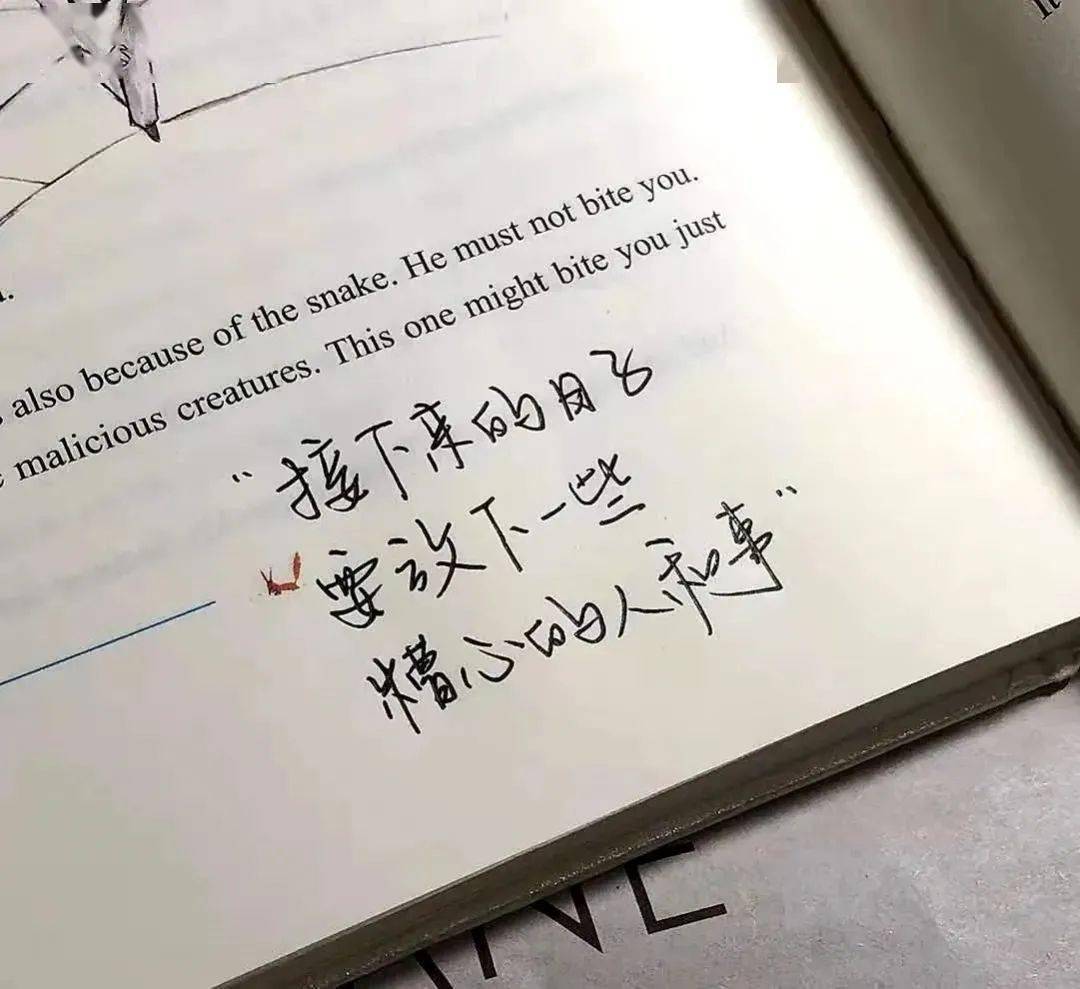 also because of the snake. He must not bite you.
malicious creatures. This one might bite you just
“接下来的日子
要放下一些
糟心的人和事”